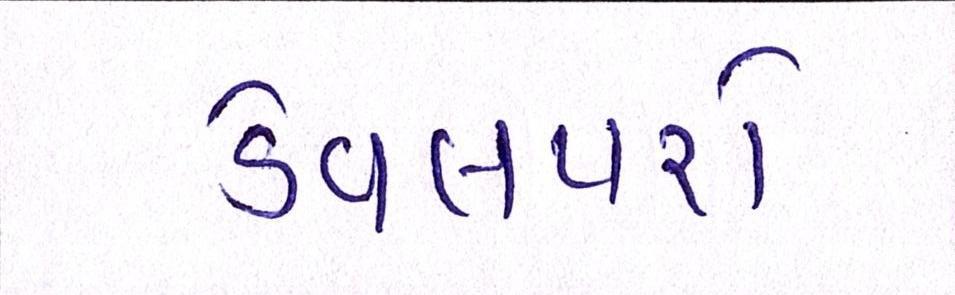 ડેવલપરો